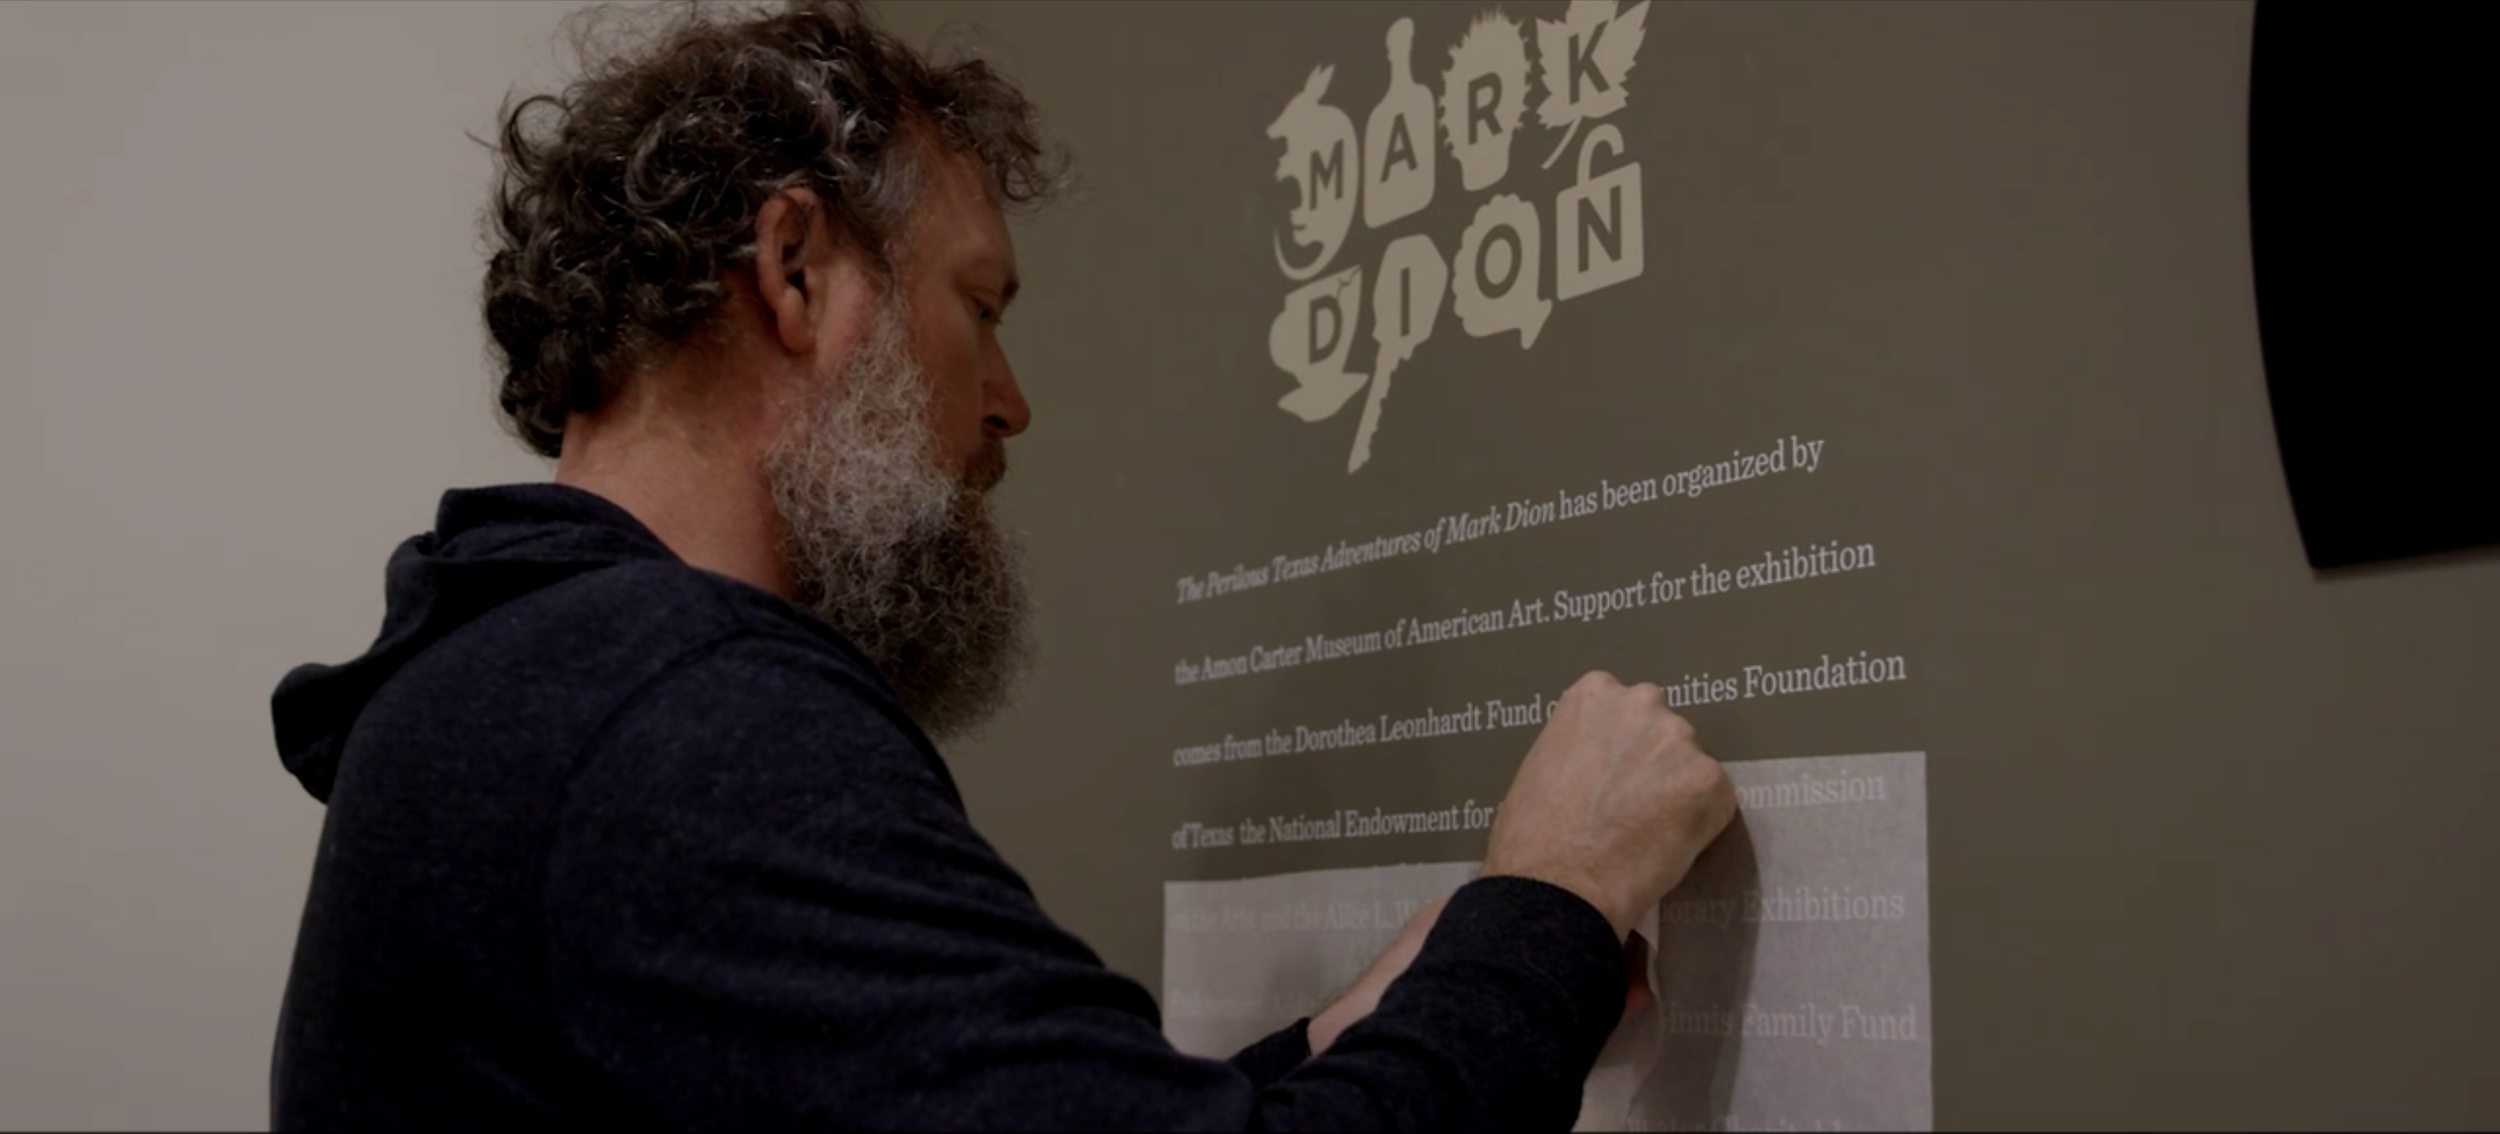 MARK
DION
The Perilous Texas Adventures of Mark Dion has been organized by
the Amon Carter Museum of American Art. Support for the exhibition
comes from the Dorothea Leonhardt Fund nities Foundation
of Texas the National Endowment for ommission
on the Arts and the Alice L. orary Exhibitions
innis Family Fund